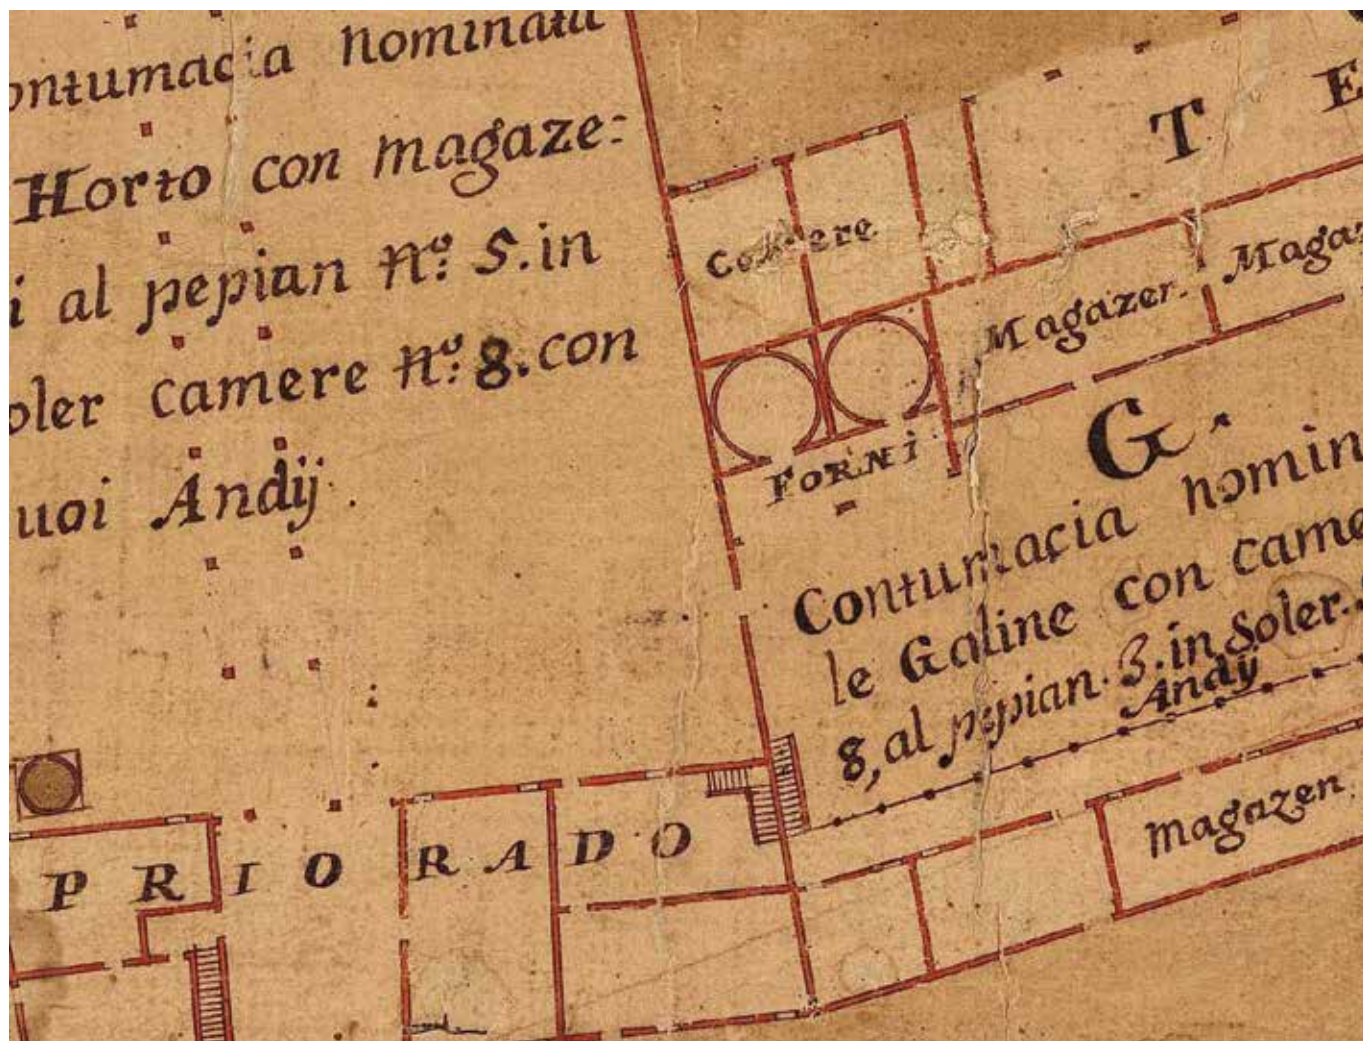 ontumacia nominata
Horto con magaze:
i al pepian nº: 5. in
oler camere nº: 8. con
uoi Andÿ.
T E
Camere
Magazer.
Magaz
FORNI
G.
Contumacia nomin
le Galine con came
8, al pepian. 3. in Soler.
Andÿ
magazen
PRIORADO